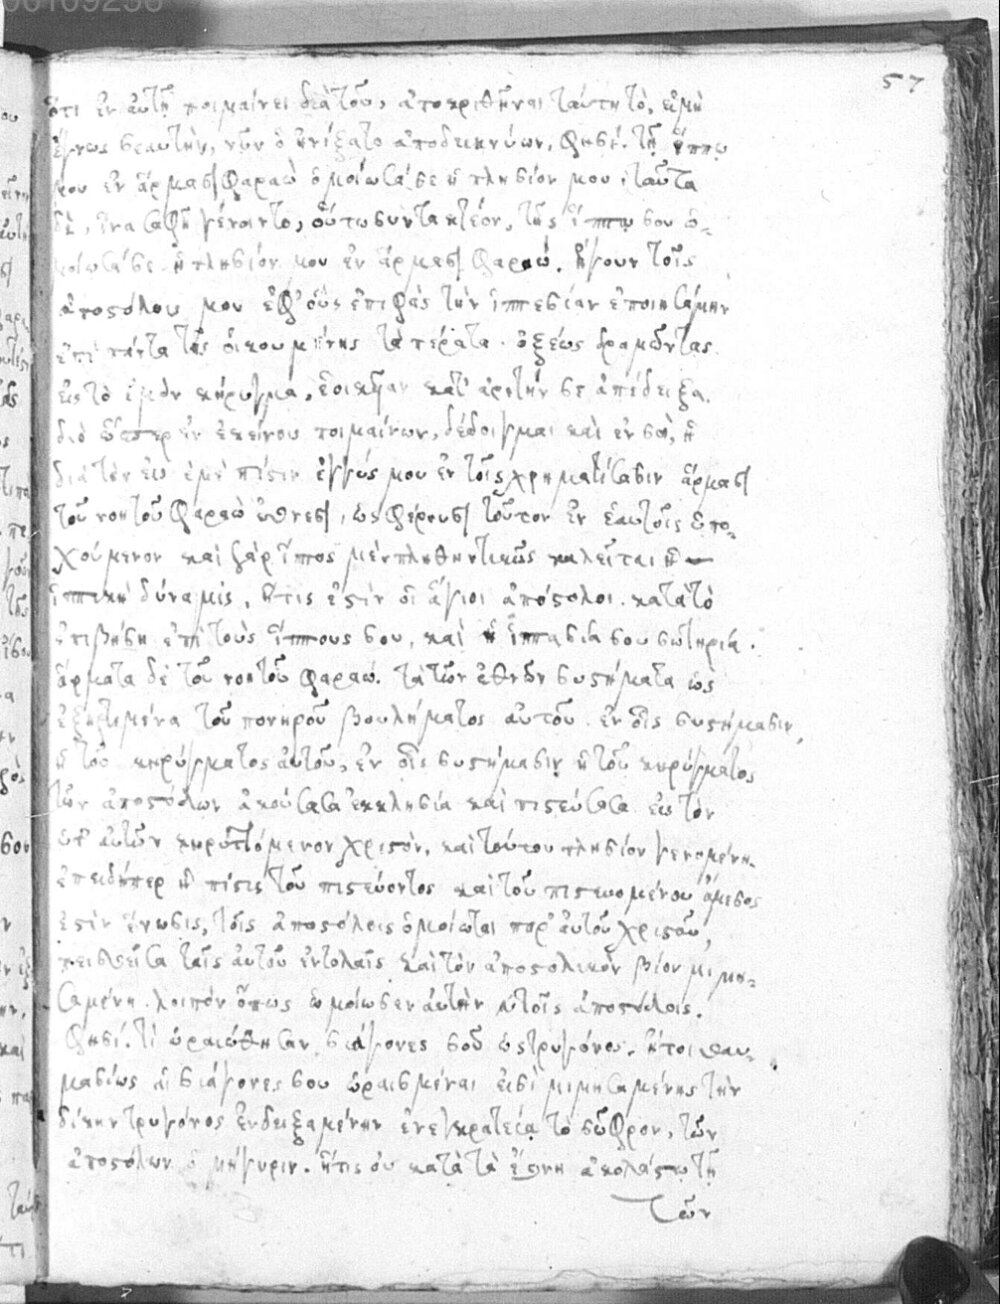 57
ὅτι ἐν αὐτῇ ποιμαίνει διὰ τοῦ, ἀποκριθῆναι ταύτῃ τὸ, εἰ μὴ
ἔγνως σεαυτὴν, νῦν ὃ ἠνίξατο ἀποδεικνύων, φησί. τῇ ἵππῳ
μου ἐν ἅρμασι φαραὼ ὁμοίωσά σε ἡ πλησίον μου, ταῦτα
δὲ, ἵνα σαφῆ γένοιντο, οὕτω συντακτέον, τῆς ἵππῳ σου ὁ-
μοίωσά σε ἡ πλησίον μου ἐν ἅρμασι φαραώ. ἤγουν τοῖς
ἀποστόλου μου ἐφ' οὓς ἐπιβὰς τὴν ἱππασίαν ἐποιησάμην
ἐπὶ πάντα τῆς οἰκουμένης τὰ πέρατα. ὀξέως δραμόντας
εἰς τὸ ἐμὸν κήρυγμα, ἐοικυῖαν κατ' ἀρετήν σε ἀπέδειξα.
διὸ ὥσπερ ἐν ἐκείνου ποιμαίνων, δέδειγμαι καὶ ἐν σοὶ, ἢ
διὰ τὸν εἰς ἐμὲ πίστιν ἐγγύς μου ἐν τοῖς χρηματίσασιν ἅρμασι
τοῦ νοητοῦ φαραὼ ἔθνεσι, ὡς φέρουσι τοῦτον ἐν ἑαυτοῖς ἐπο-
χούμενον καὶ γὰρ ἵππος μὲν πληθυντικῶς καλεῖται ἡ
ἱππικὴ δύναμις, ἥτις ἐστὶν οἱ ἅγιοι ἀπόστολοι. κατὰ τὸ
ἐπιβήσῃ ἐπὶ τοὺς ἵππους σου, καὶ ἡ ἱππασία σου σωτηρία.
ἅρματα δὲ τοῦ νοητοῦ φαραώ. τὰ τῶν ἐθνῶν συστήματα ὡς
ἐξηρτημένα τοῦ πονηροῦ βουλήματος αὐτοῦ. ἐν οἷς συστήμασιν,
ἡ τοῦ κηρύγματος αὐτοῦ, ἐν οἷς συστήμασιν ἡ τοῦ κηρύγματος
τῶν ἀποστόλων ἀκούσασα ἐκκλησία καὶ πιστεύσασα εἰς τὸν
ὑπ' αὐτῶν κηρυττόμενον χριστὸν, καὶ τούτου πλησίον γενομένη.
ἐπειδήπερ ἡ πίστις τοῦ πιστεύοντος καὶ τοῦ πιστευομένου ἄμεσος
ἐστὶν ἕνωσις, τοῖς ἀποστόλοις ὁμοίωται παρ' αὐτοῦ χριστοῦ,
πεισθεῖσα ταῖς αὐτοῦ ἐντολαῖς καὶ τὸν ἀποστολικὸν βίον μιμη-
σαμένη. λοιπὸν ὅπως ὡμοίωσεν αὐτὴν τοῖς ἀποστόλοις.
φησί. τί ὡραιώθησαν σιάγονες σοῦ ὡς τρυγόνος. ἤτοι θαυ-
μασίως αἱ σιάγονες σου ὡραισμέναι εἰσὶ μιμησαμένης τὴν
δίκην τρυγόνος ἐνδειξαμένην ἐν ἐγκρατείᾳ τὸ σῶφρον, τῶν
ἀποστόλων ὁμήγυριν. ἥτις οὐ κατὰ τὰ ἔθνη ἀκολάστῳ τῇ
τῶν